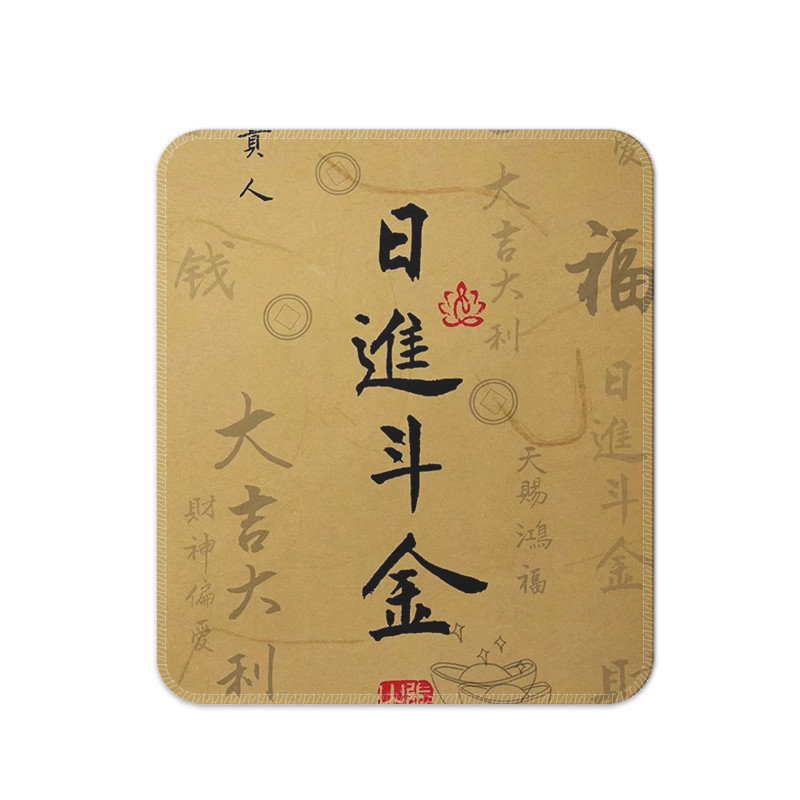 福
日進斗金
大吉大利
天賜鴻福
日進斗金
人
大吉大利
钱
財神偏爱